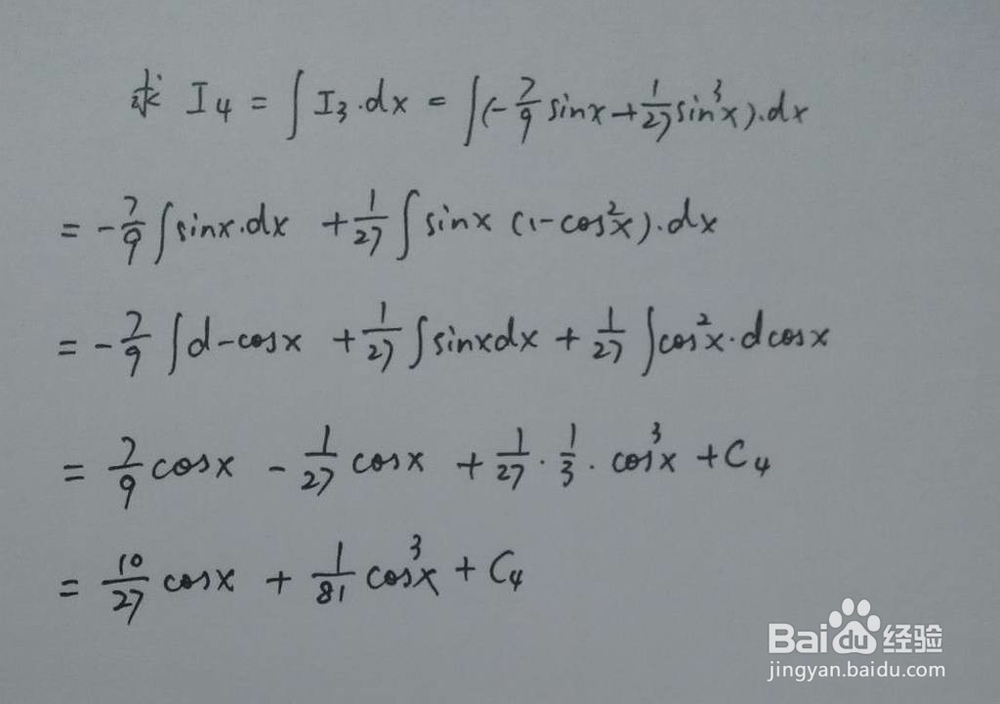 求 I₄ = ∫ I₃·dx = ∫(-7/9 sinx + 1/27 sin³x)·dx
= -7/9 ∫sinx·dx + 1/27 ∫ sinx (1-cos²x)·dx
= -7/9 ∫d-cosx + 1/27 ∫sinxdx + 1/27 ∫cos²x·dcosx
= 7/9 cosx - 1/27 cosx + 1/27 · 1/3 · cos³x + C₄
= 10/27 cosx + 1/81 cos³x + C₄
Baidu经验
jingyan.baidu.com